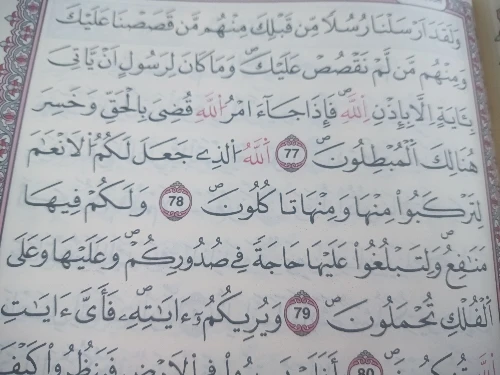 وَلَقَدَ اَرْسَلْنَا رُسُلاً مِّن قَبْلِكَ مِنْهُم مَّن قَصَصْنَا عَلَيْكَ
وَمِنْهُم مَّن لَّمْ نَقْصُصْ عَلَيْكَۖ وَمَا كَانَ لِرَسُولٍ اَنْ يَّاتِيَ
بِـَٔايَةٍ اِلَّا بِإِذْنِ اِ۬للَّهِۖ فَإِذَا جَآءَ امْرُ اُ۬للَّهِ قُضِيَ بِالْحَقِّ وَخَسِرَ
هُنَالِكَ اَ۬لْمُبْطِلُونَۖ 77 اَ۬للَّهُ اُ۬لذِے جَعَلَ لَكُمُ اُ۬لَانْعَٰمَ
لِتَرْكَبُواْ مِنْهَا وَمِنْهَا تَاكُلُونَۖ 78 وَلَكُمْ فِيهَا
مَنَٰفِعُۖ وَلِتَبْلُغُواْ عَلَيْهَا حَاجَةً فِے صُدُورِكُمْۖ وَعَلَيْهَا وَعَلَى
اَ۬لْفُلْكِ تُحْمَلُونَۖ 79 وَيُرِيكُمُۥٓ ءَايَٰتِهِۦۖ فَأَيَّ ءَايَٰتِ
اَ۬للَّهِ تُنكِرُونَۖ 80 اَفَلَمْ يَسِيرُواْ فِے اِ۬لَارْضِ فَيَنظُرُواْ كَيْفَ